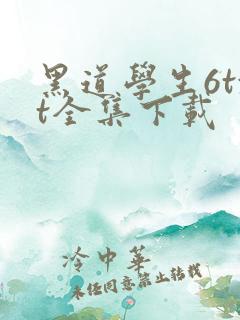 黑道學生6tx
t全集下載
冷中華
未经同意禁止转载